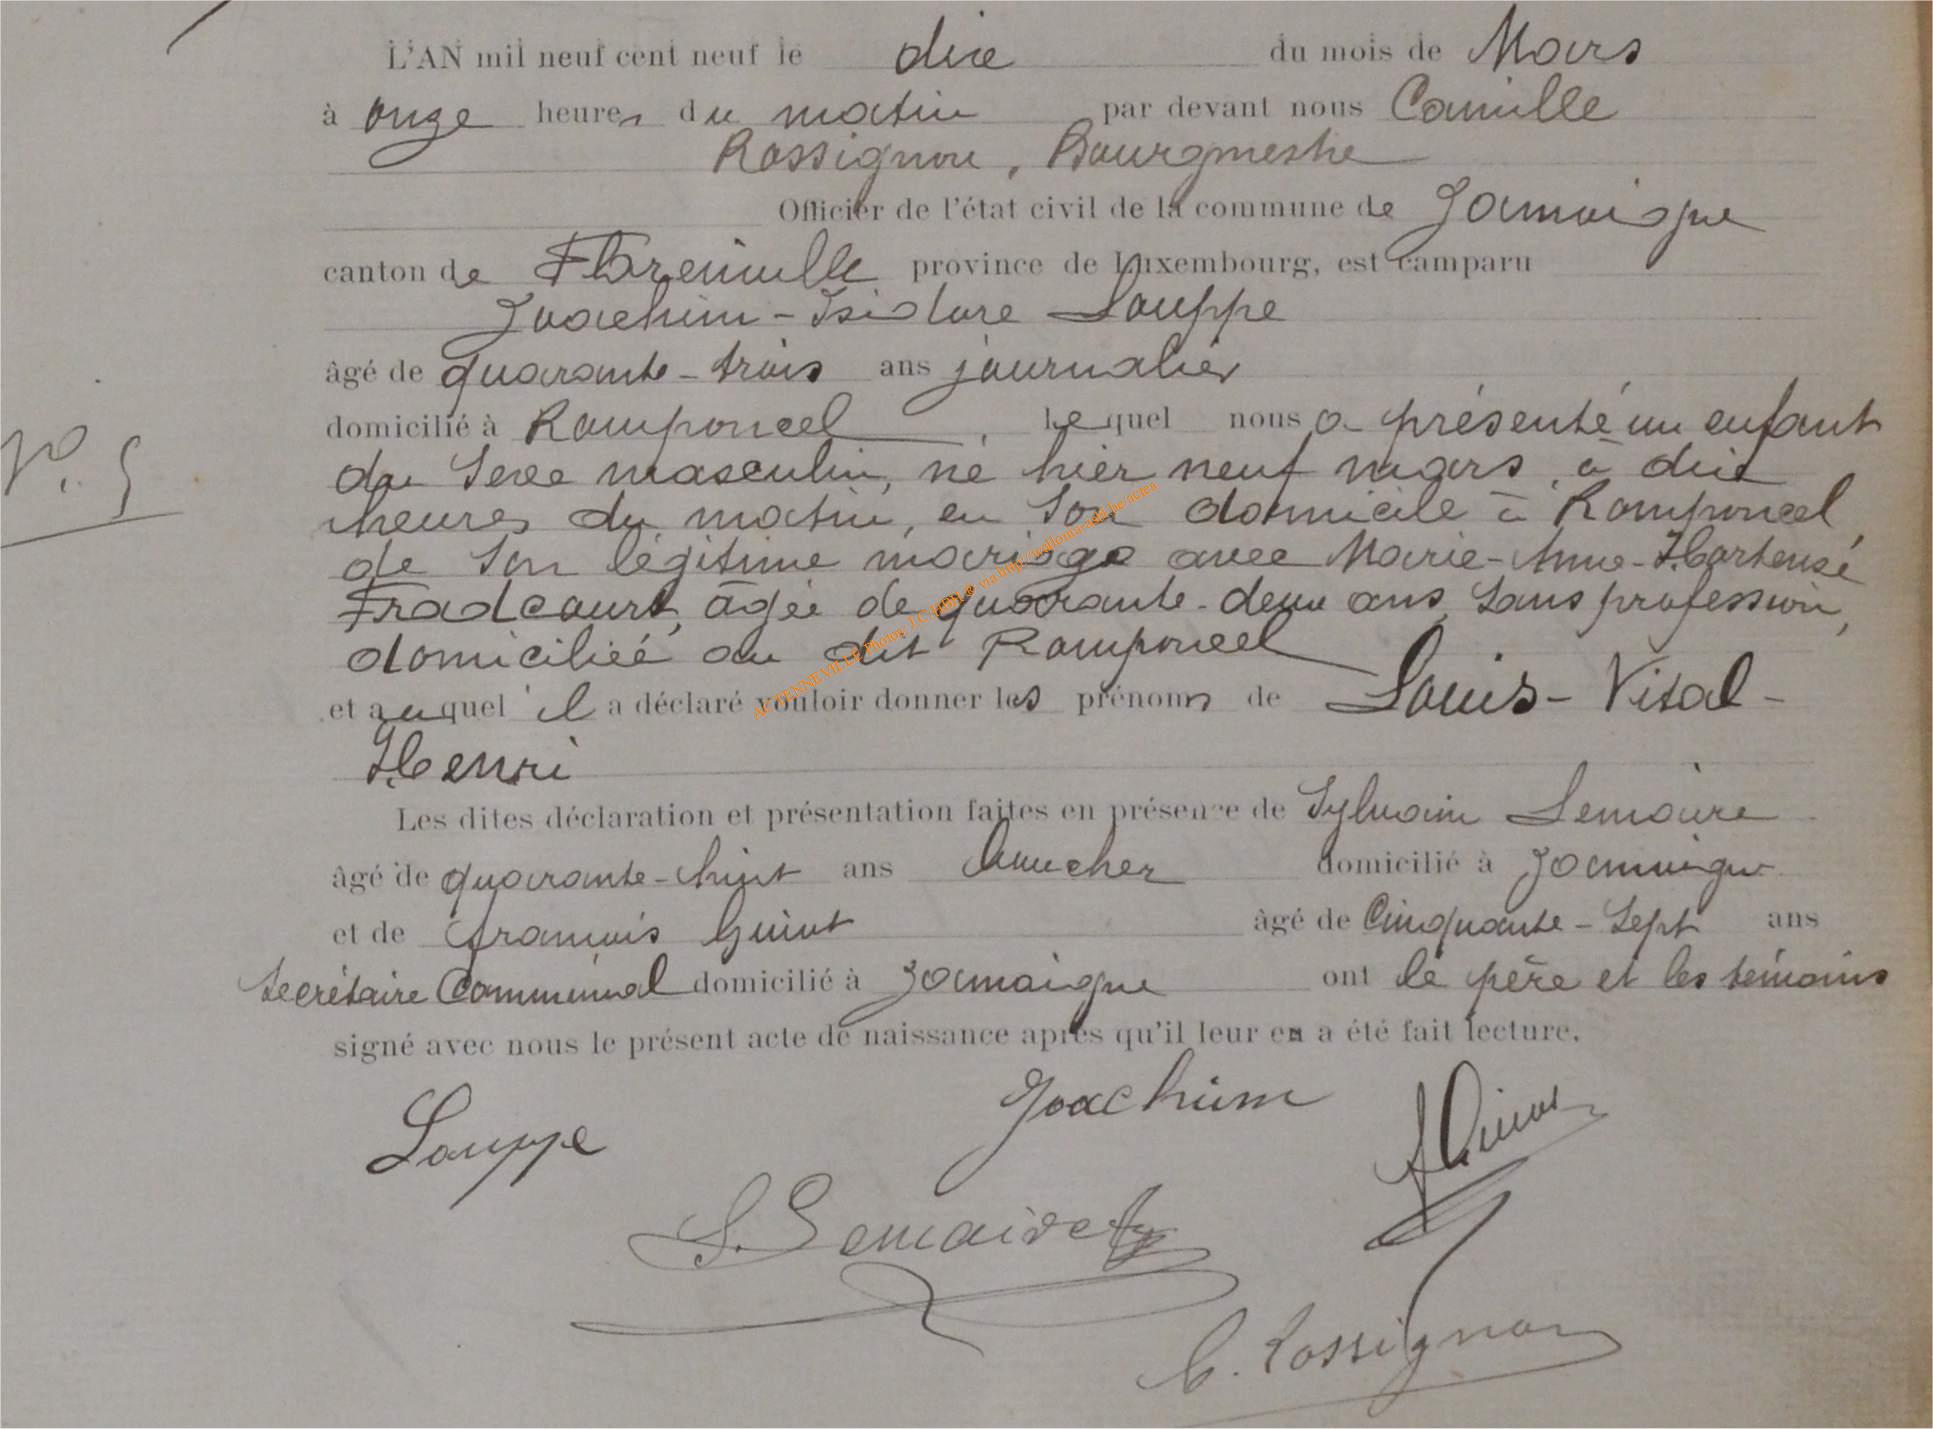 L'AN mil neuf cent neuf le dix du mois de Mars
à onze heures du matin par devant nous Camille
Rossignon, Bourgmestre
Officier de l'état civil de la commune de Jamoigne
canton de Florenville province de Luxembourg, est camparu
Joachim-Isidore Louppe
âgé de quarante-trois ans journalier
domicilié à Romponcel, lequel nous a présenté un enfant
N°. 5
du sexe masculin, né hier neuf mars, à dix
heures du matin, en son domicile à Romponcel
de son légitime mariage avec Marie-Anne-Hortense
Fradcourt, âgée de quarante-deux ans, sans profession,
domiciliée au dit Romponcel
et auquel il a déclaré vouloir donner les prénoms de Louis-Vital-
Henri
Les dites déclaration et présentation faites en présence de Sylvain Lemaire
âgé de quarante-huit ans domicilié à Jamoigne
et de François Guiot âgé de Cinquante-Sept ans
Secrétaire Communal domicilié à Jamoigne ont le père et les témoins
signé avec nous le présent acte de naissance après qu'il leur en a été fait lecture.
Louppe Joachim
F Guiot
S. Lemaire
C. Rossignon